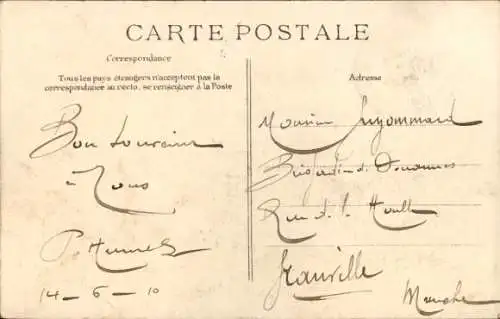 CARTE POSTALE
Correspondance
Tous les pays étrangers n'acceptent pas la
correspondance au recto, se renseigner à la Poste
Bon Souvenir
à Tous
14 - 6 - 10
Adresse
Monsieur
Brigadier de Douanes
Rue de la Houle
Granville
Manche